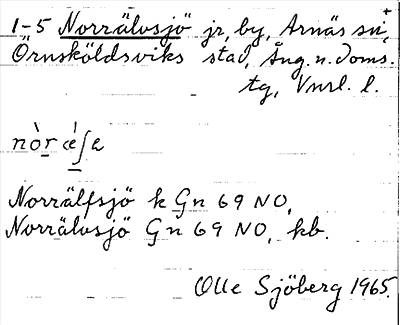 1-5 Norrälvsjö jr, by, Arnäs sn,
Örnsköldsviks stad, Ång. n. doms.
tg, Vnrl. l.
nòr ǽʃa
Norrälfsjö k Gn 69 NO,
Norrälvsjö Gn 69 NO, kb.
Olle Sjöberg 1965.